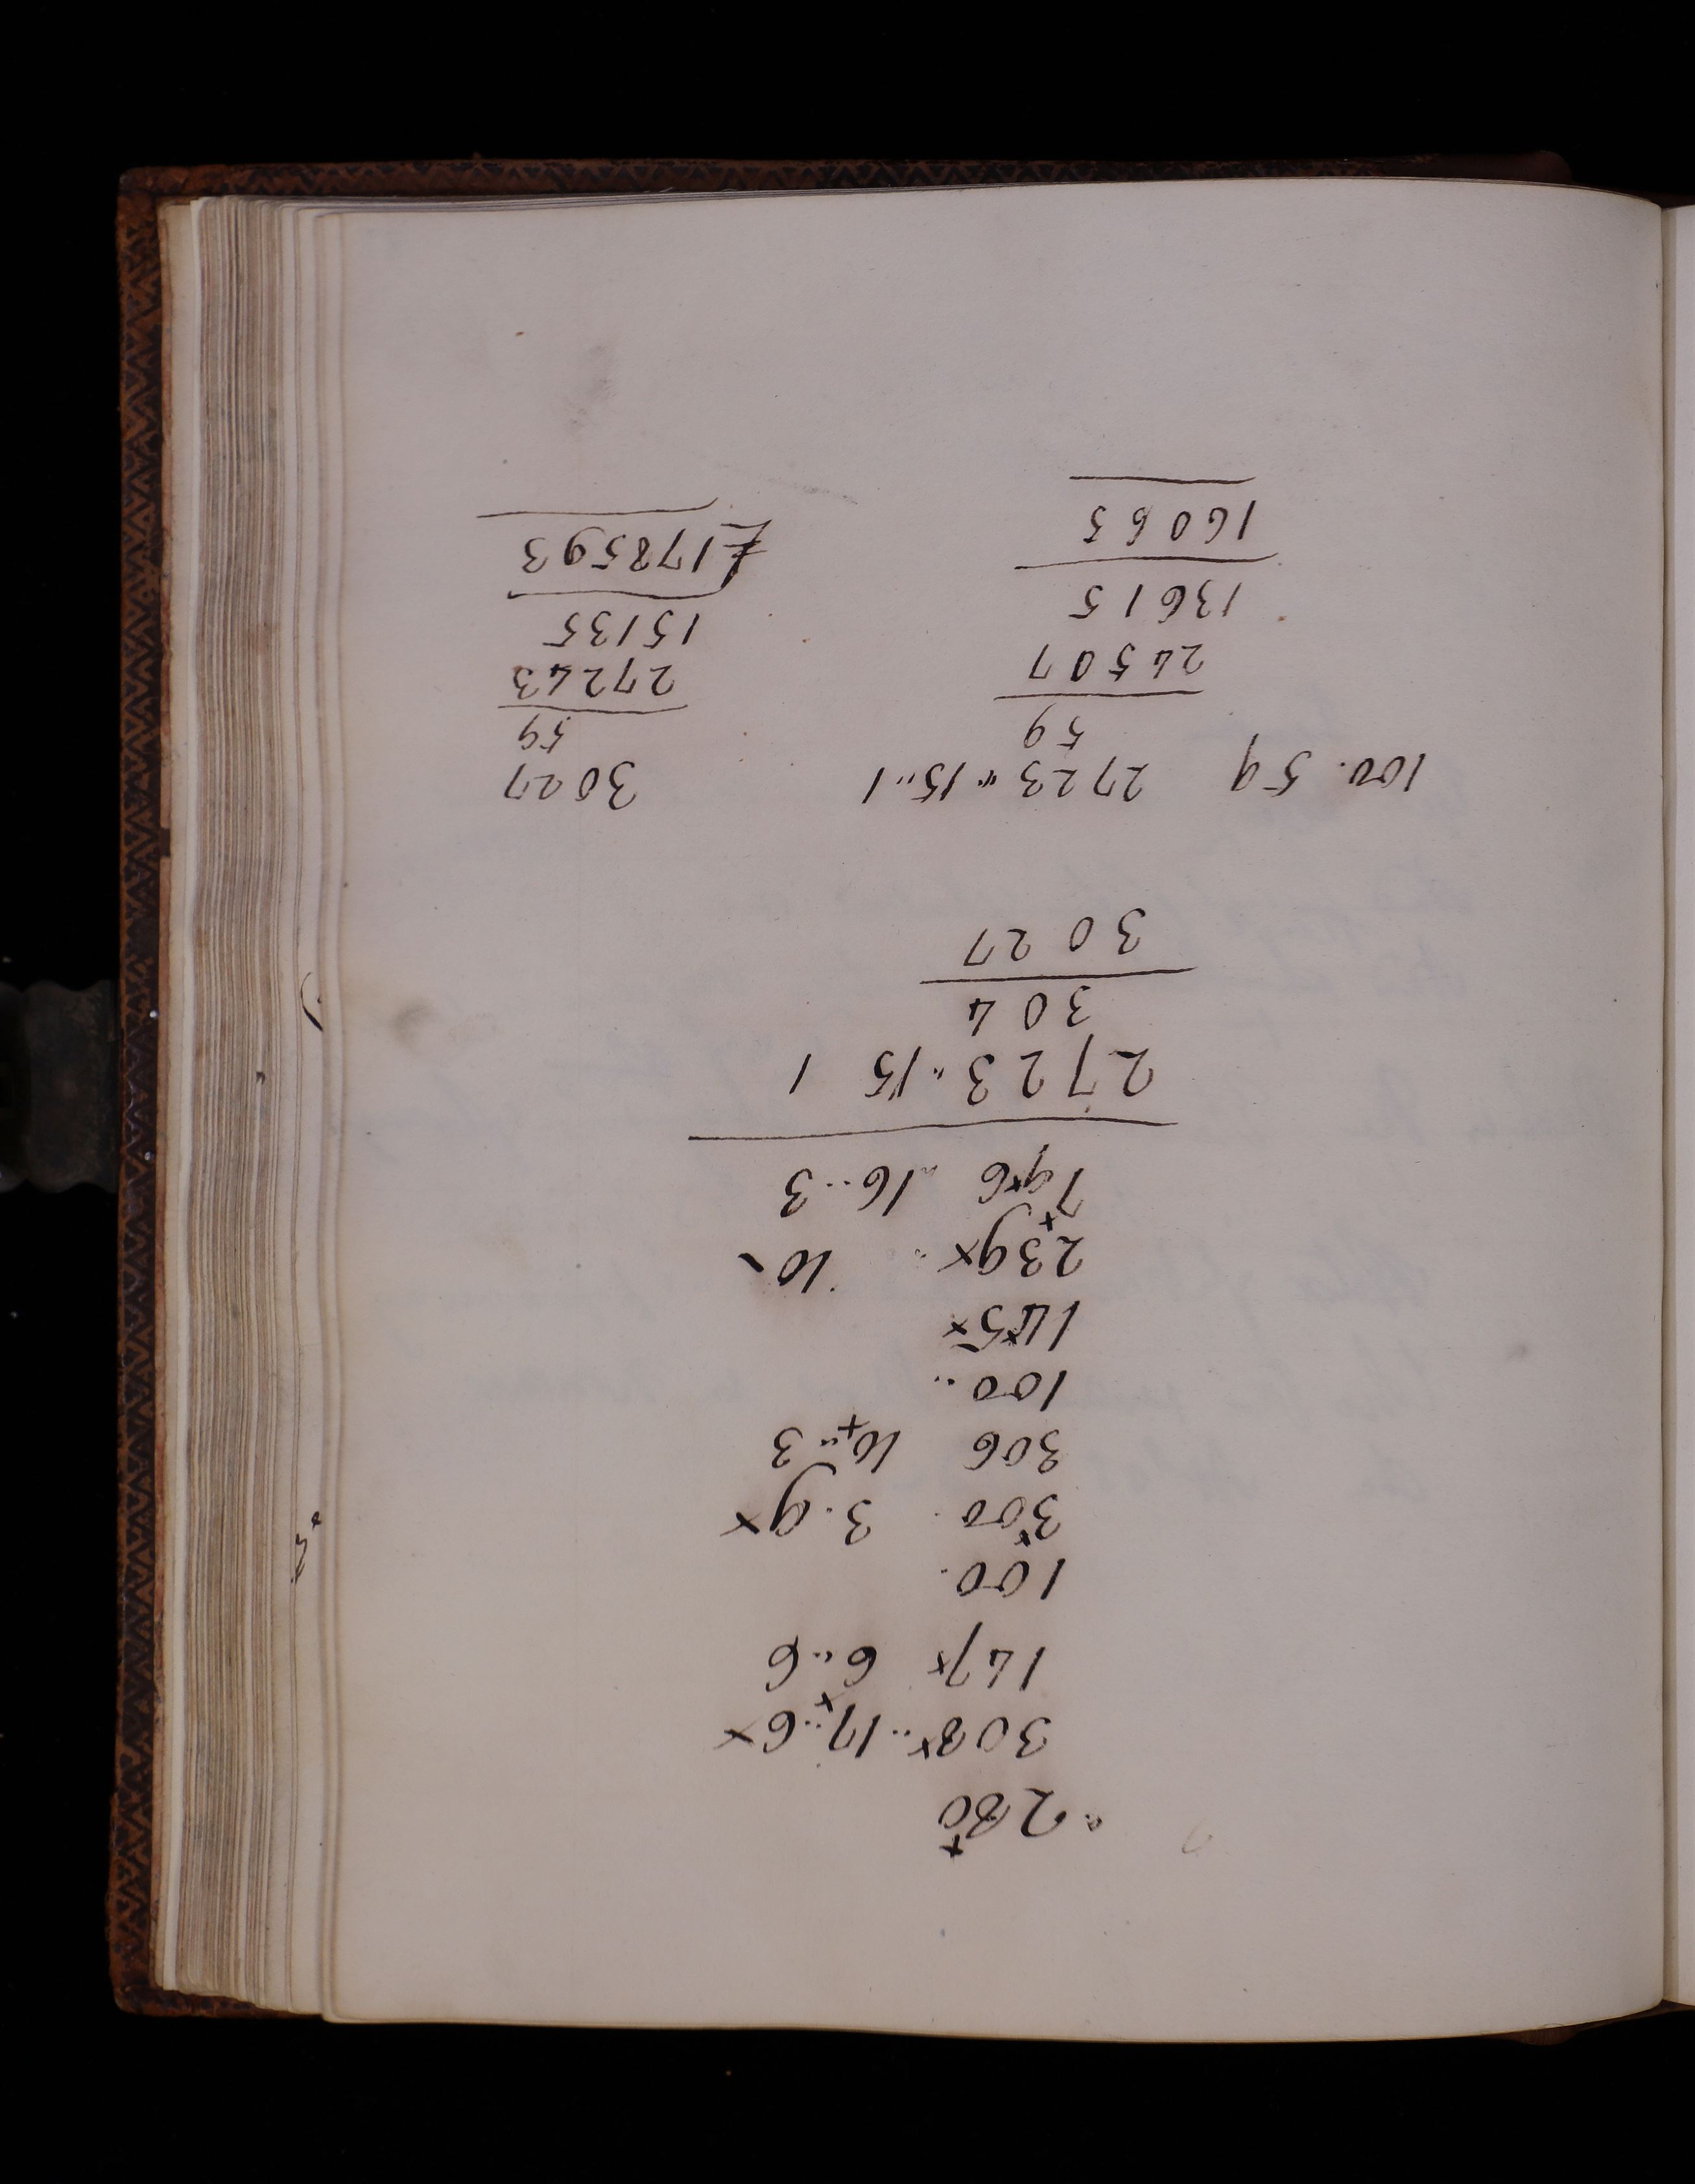 280
308x..17..6x
147x 6..6
100.
300. 3.9x
306 10..3
100..
145x
239x .. 10
796 .. 16..3
2723 .. 15 1
304
3027
100. 59 2723 .. 15..1 3027
59 59
24507 27243
13615 15135
16065 £178593